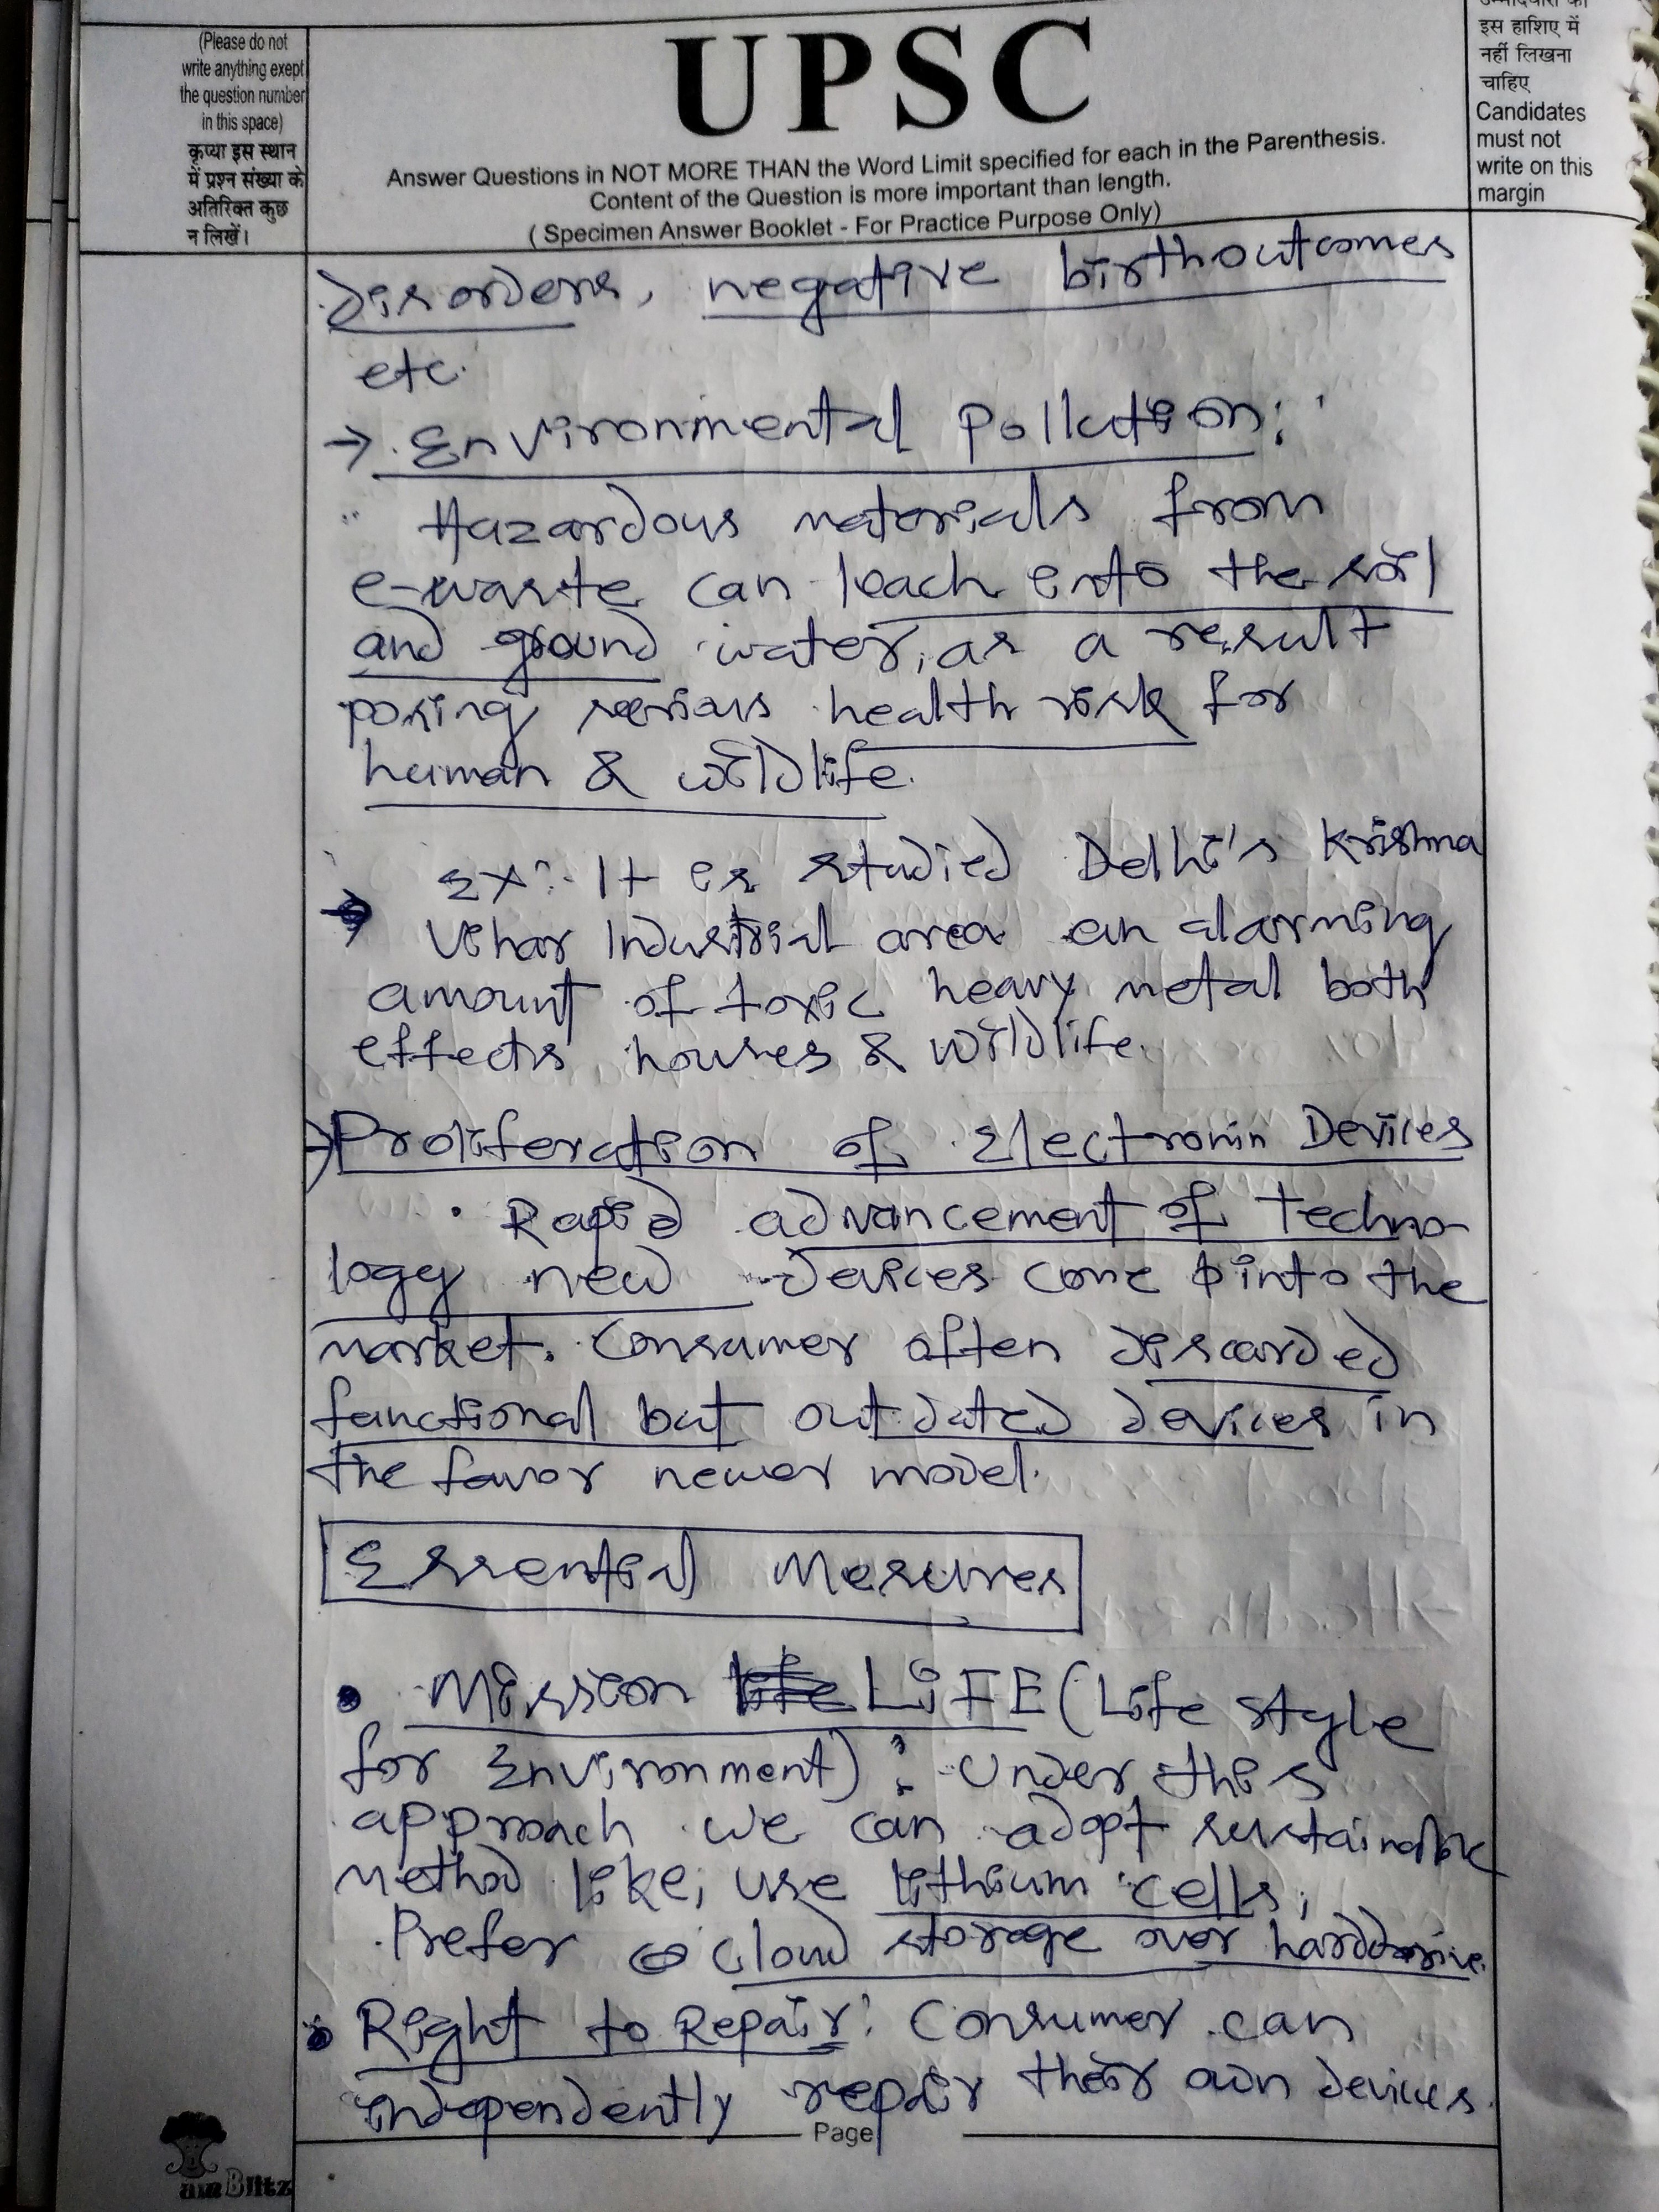 (Please do not
write anything exept
the question number
in this space)
कृप्या इस स्थान
में प्रश्न संख्या के
अतिरिक्त कुछ
न लिखें।
UPSC
Answer Questions in NOT MORE THAN the Word Limit specified for each in the Parenthesis.
Content of the Question is more important than length.
( Specimen Answer Booklet - For Practice Purpose Only)
उम्मीदवारों को
इस हाशिए में
नहीं लिखना
चाहिए
Candidates
must not
write on this
margin
Disorders, negative birthoutcomes
etc.
→ Environmental Pollution:
Hazardous materials from
e-waste can leach into the soil
and ground water, as a result
posing serious health risk for
human & wildlife.
Ex:- It is studied Delhi's Krishna
→ Vihar Industrial area an alarming
amount of toxic heavy metal both
effects houses & wildlife.
→ Proliferation of Electronin Devices
• Rapid advancement of techno-
logy new devices come into the
market. Consumer often discarded
functional but outdated devices in
the favor newer model.
Essential Mesures
• Mission LiFE (Life style
for Environment) : Under this
approach we can adopt sustainable
method like, use lithium cells,
Prefer cloud storage over harddrive.
• Right to Repair: Consumer can
independently repair their own devices.
Page